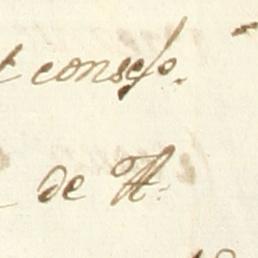 consejo.
de A.